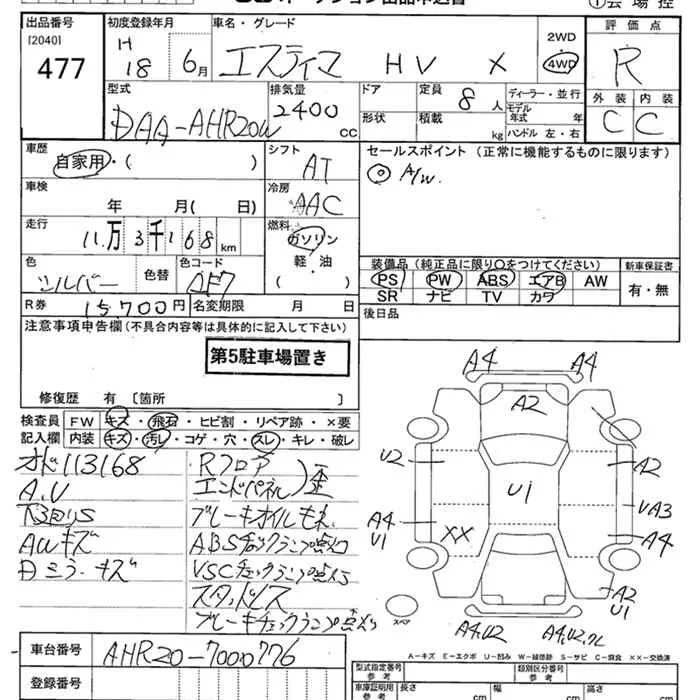 出品番号
[2040]
477
初度登録年月
H 18 6月
車名・グレード
エスティマ HV X
2WD
4WD
評価点
R
外装 内装
C C
型式
DAA-AHR20W
排気量
2400 cc
ドア
形状
定員 8人
積載 kg
ディーラー・並行
モデル年式 年
ハンドル 左・右
車歴
自家用・( )
シフト
AT
セールスポイント (正常に機能するものに限ります)
◎ A/W.
車検
年 月( 日)
冷房
AAC
走行
11万3千168km
燃料
ガソリン
軽・油
( )
色
シルバー
色替
色コード
装備品 (純正品に限り○をつけてください)
PS PW ABS エアB AW
SR ナビ TV カワ
新車保証書
有・無
R券 15,700円
名変期限 月 日
後日品
注意事項申告欄 (不具合内容等は具体的に記入して下さい)
第5駐車場置き
修復歴 有〔箇所 〕
検査員
記入欄
FW キズ・飛石・ヒビ割・リペア跡・×要
内装 キズ・汚レ・コゲ・穴・スレ・キレ・破レ
オド113168
A.U
下回りS
AWキズ
Dミラーキズ
Rフロア
エンドパネル)歪
ブレーキオイルモレ
ABSチェックランプ点灯
VSCチェックランプ点灯
スタットレス
ブレーキチェックランプ点灯
A4 A4
A2
U2
A2
U1
UA3
A4
U1
XX
A4
A2
U1
スペア
A4.U2
A-キズ E-エクボ U-凹み W-補修跡 S-サビ C-腐食 ××-交換済
車台番号
AHR20-7000776
登録番号
型式指定番号
参考
類別区分番号
参考
車庫証明用
参考
長さ cm
幅 cm
高さ cm